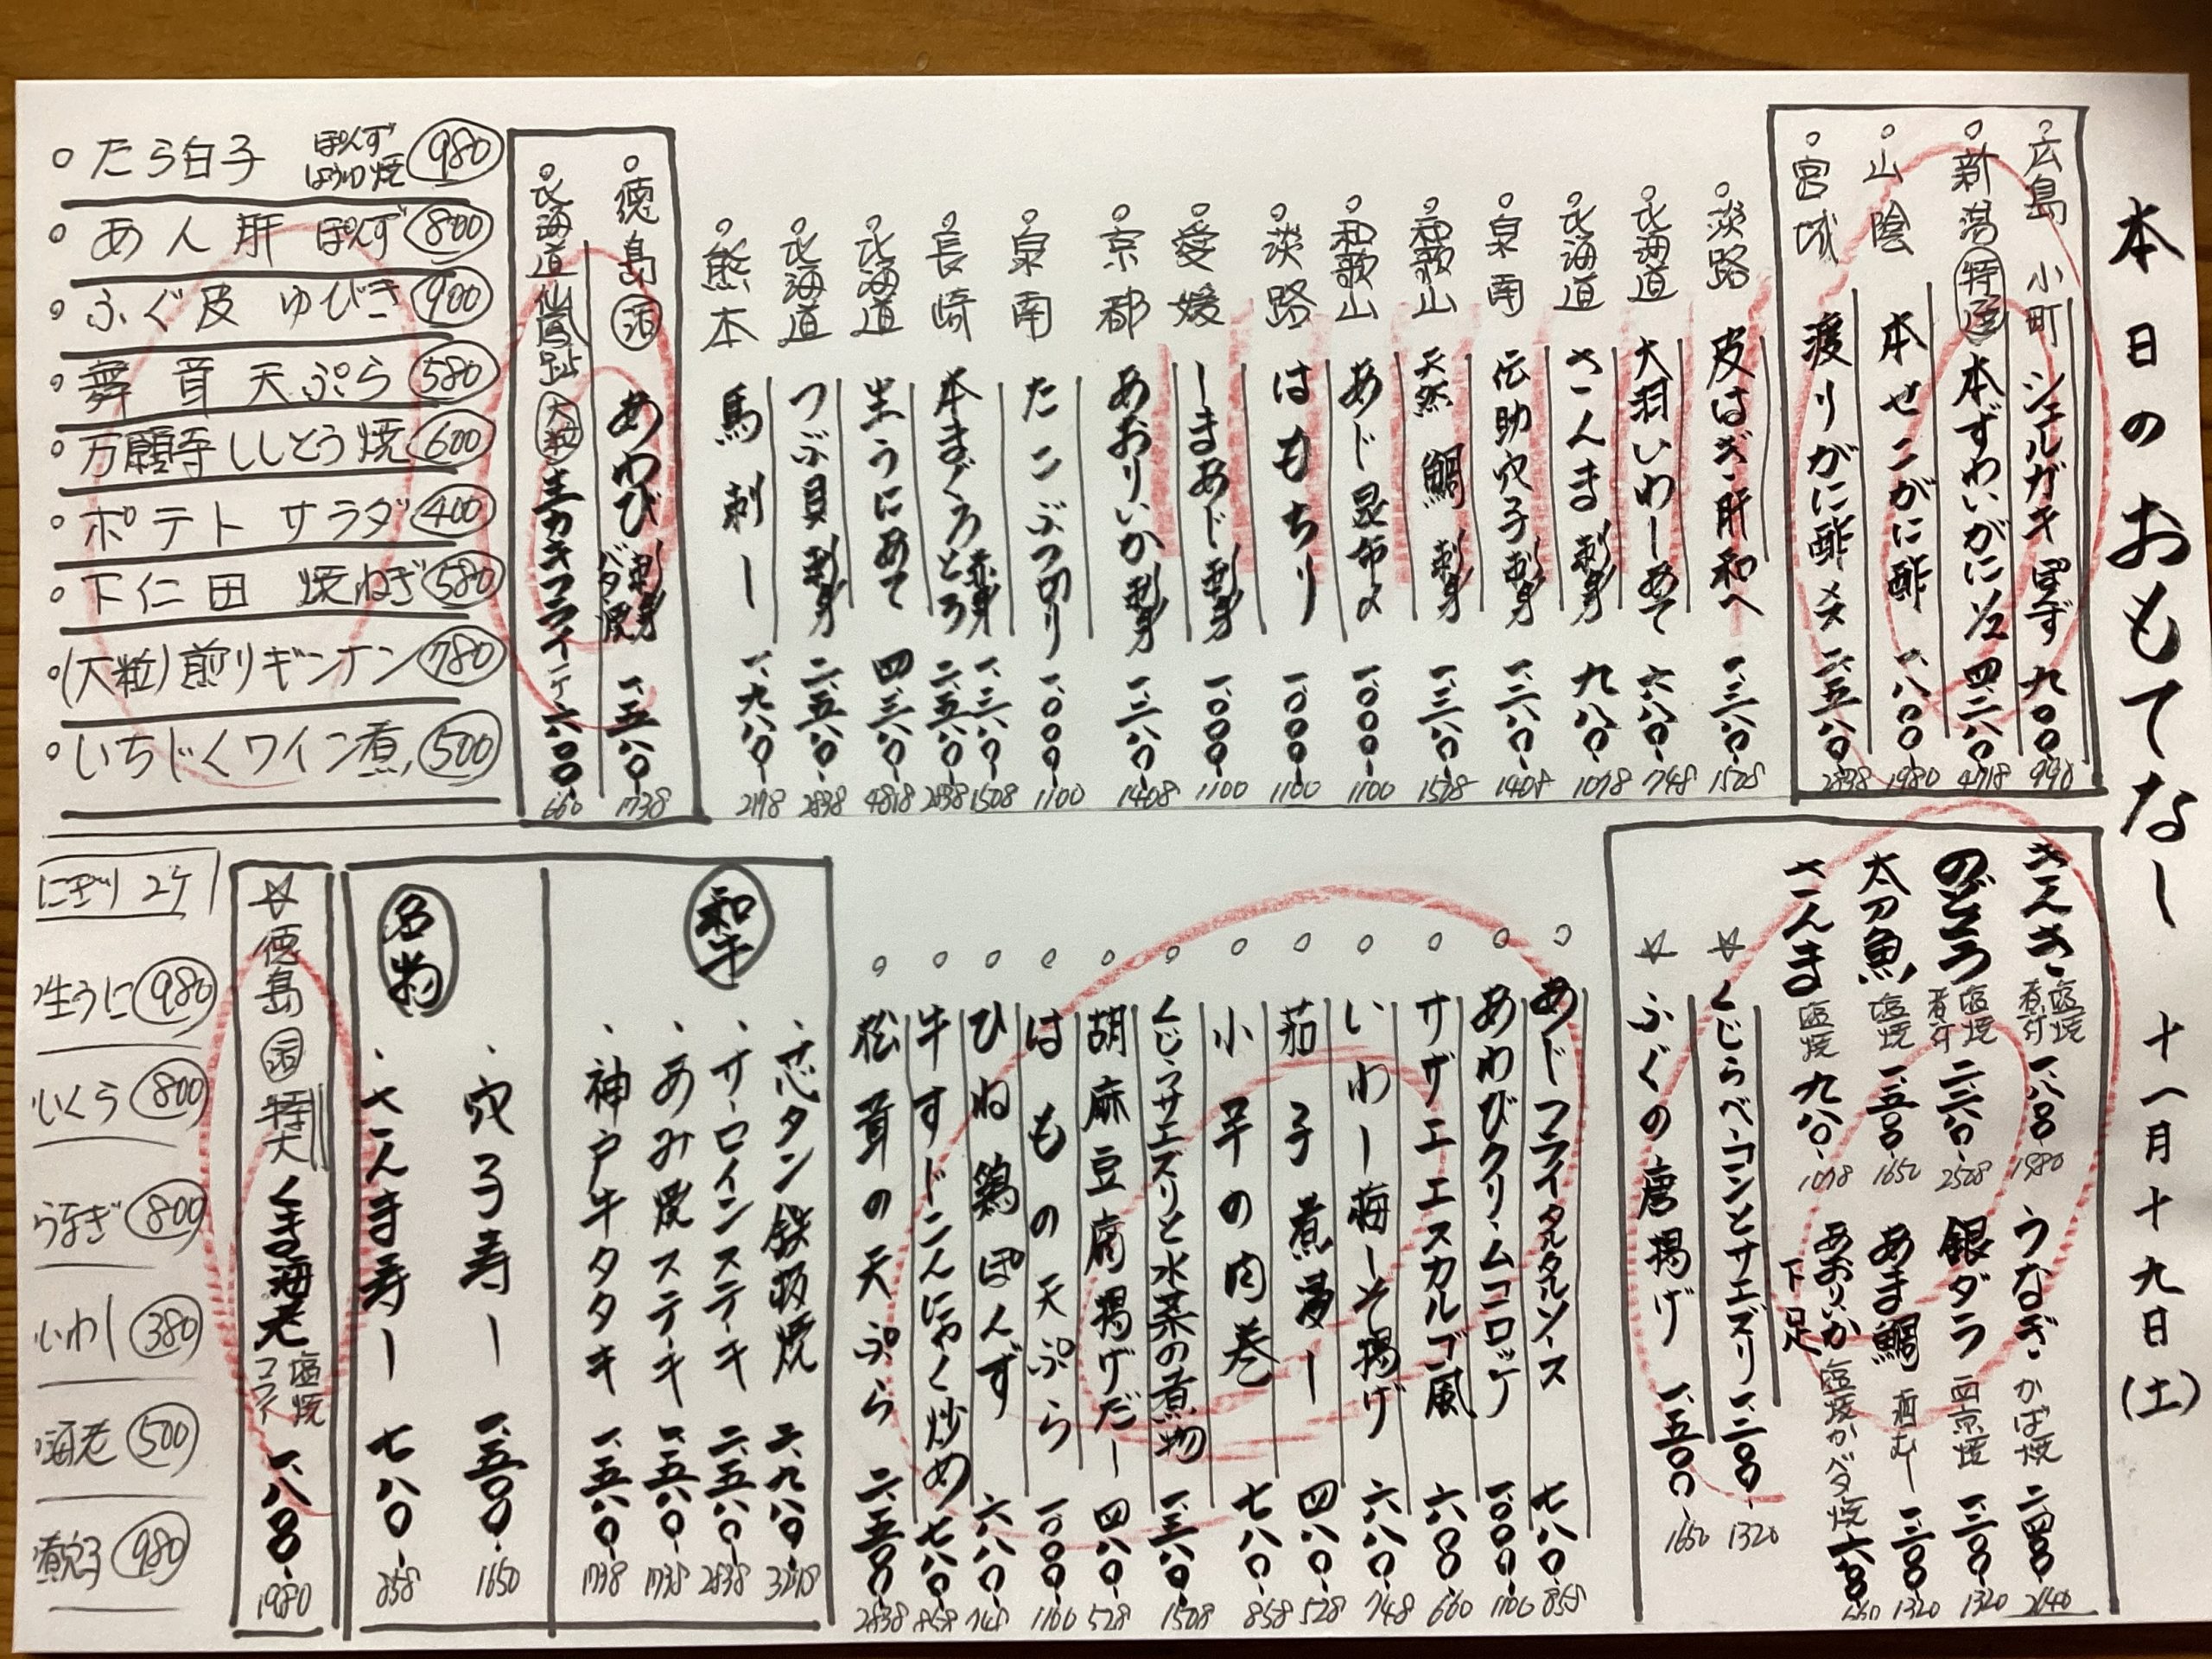 本日のおもてなし 十一月十九日(土)
広島 小町 シェルガキ 酢 九〇〇 990
新潟 特選 本ずわいがに 1/2 四、二八〇 4718
山陰 本せこがに酢 一、八〇〇 1980
宮城 渡りがに酢 メス 二、五八〇 2838
淡路 皮はぎ肝和へ 一、三八〇 1508
北海道 大羽いわしあて 六八〇 748
北海道 さんま刺身 九八〇 1078
泉南 伝助穴子刺身 一、二八〇 1408
和歌山 天然鯛刺身 一、三八〇 1508
和歌山 あじ昆布〆 一、〇〇〇 1100
淡路 はもちり 一、〇〇〇 1100
愛媛 しまあじ刺身 一、〇〇〇 1100
京都 あおりいか刺身 一、二八〇 1408
泉南 たこぶつ切り 一、〇〇〇 1100
長崎 本まぐろ 赤身 一、三八〇 1508
とろ 二、五八〇 2838
北海道 生うにあて 四、三八〇 4818
北海道 つぶ貝刺身 二、五八〇 2838
熊本 馬刺し 一、九八〇 2178
徳島 活 あわび 刺身 バタ焼 一、五八〇 1738
北海道 仙鳳趾 大粒 生カキフライ 二ケ 六〇〇 660
たら白子 ぽんず 焼 980
あん肝 ぽんず 800
ふぐ皮 ゆびき 900
舞茸天ぷら 580
万願寺ししとう焼 600
ポテトサラダ 400
下仁田 焼ねぎ 580
(大粒)煎りギンナン 780
いちじくワイン煮 500
きんき 塩焼 煮付 一、八〇〇 1980
うなぎ かば焼 二、四〇〇 2640
のどぐろ 塩焼 煮付 二、二八〇 2508
銀ダラ 西京焼 一、二〇〇 1320
太刀魚 塩焼 一、五〇〇 1650
あま鯛 酒むし 一、二〇〇 1320
さんま 塩焼 九八〇 1078
あおりいか下足 塩焼かバタ焼 六〇〇 660
☆くじらベーコンとサエズリ 一、二〇〇 1320
☆ふぐの唐揚げ 一、五〇〇 1650
あじフライタルタルソース 七八〇 858
あわびクリームコロッケ 一、〇〇〇 1100
サザエ エスカルゴ風 六〇〇 660
いわし梅しそ揚げ 六八〇 748
茄子煮浸し 四八〇 528
小芋の肉巻 七八〇 858
くじらサエズリと水菜の煮物 一、三八〇 1508
胡麻豆腐揚げだし 四八〇 528
はもの天ぷら 一、〇〇〇 1100
ひね鶏ぽんず 六八〇 748
牛すじこんにゃく炒め 七八〇 858
松茸の天ぷら 二、五八〇 2838
和牛
芯タン鉄板焼 二、九八〇 3278
サーロインステーキ 二、五八〇 2838
あみ焼ステーキ 一、五八〇 1738
神戸牛タタキ 一、五八〇 1738
名物
穴子寿し 一、五〇〇 1650
さんま寿し 七八〇 858
☆徳島 活 特大 くま海老 塩焼 フライ 一、八〇〇 1980
にぎり 2ケ
生うに 980
いくら 800
うなぎ 800
いわし 380
海老 500
煮穴子 980